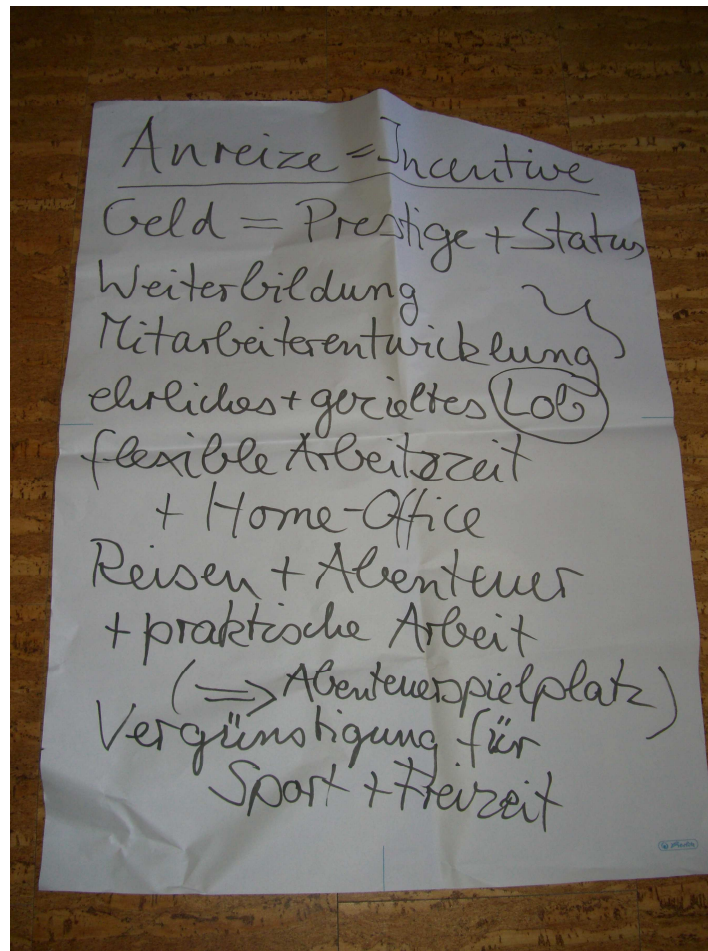 Anreize = Incentive
Geld = Prestige + Status
Weiterbildung
Mitarbeiterentwicklung
ehrliches + gezieltes Lob
flexible Arbeitszeit
+ Home-Office
Reisen + Abenteuer
+ praktische Arbeit
(⇒ Abenteuerspielplatz)
Vergünstigung für
Sport + Freizeit